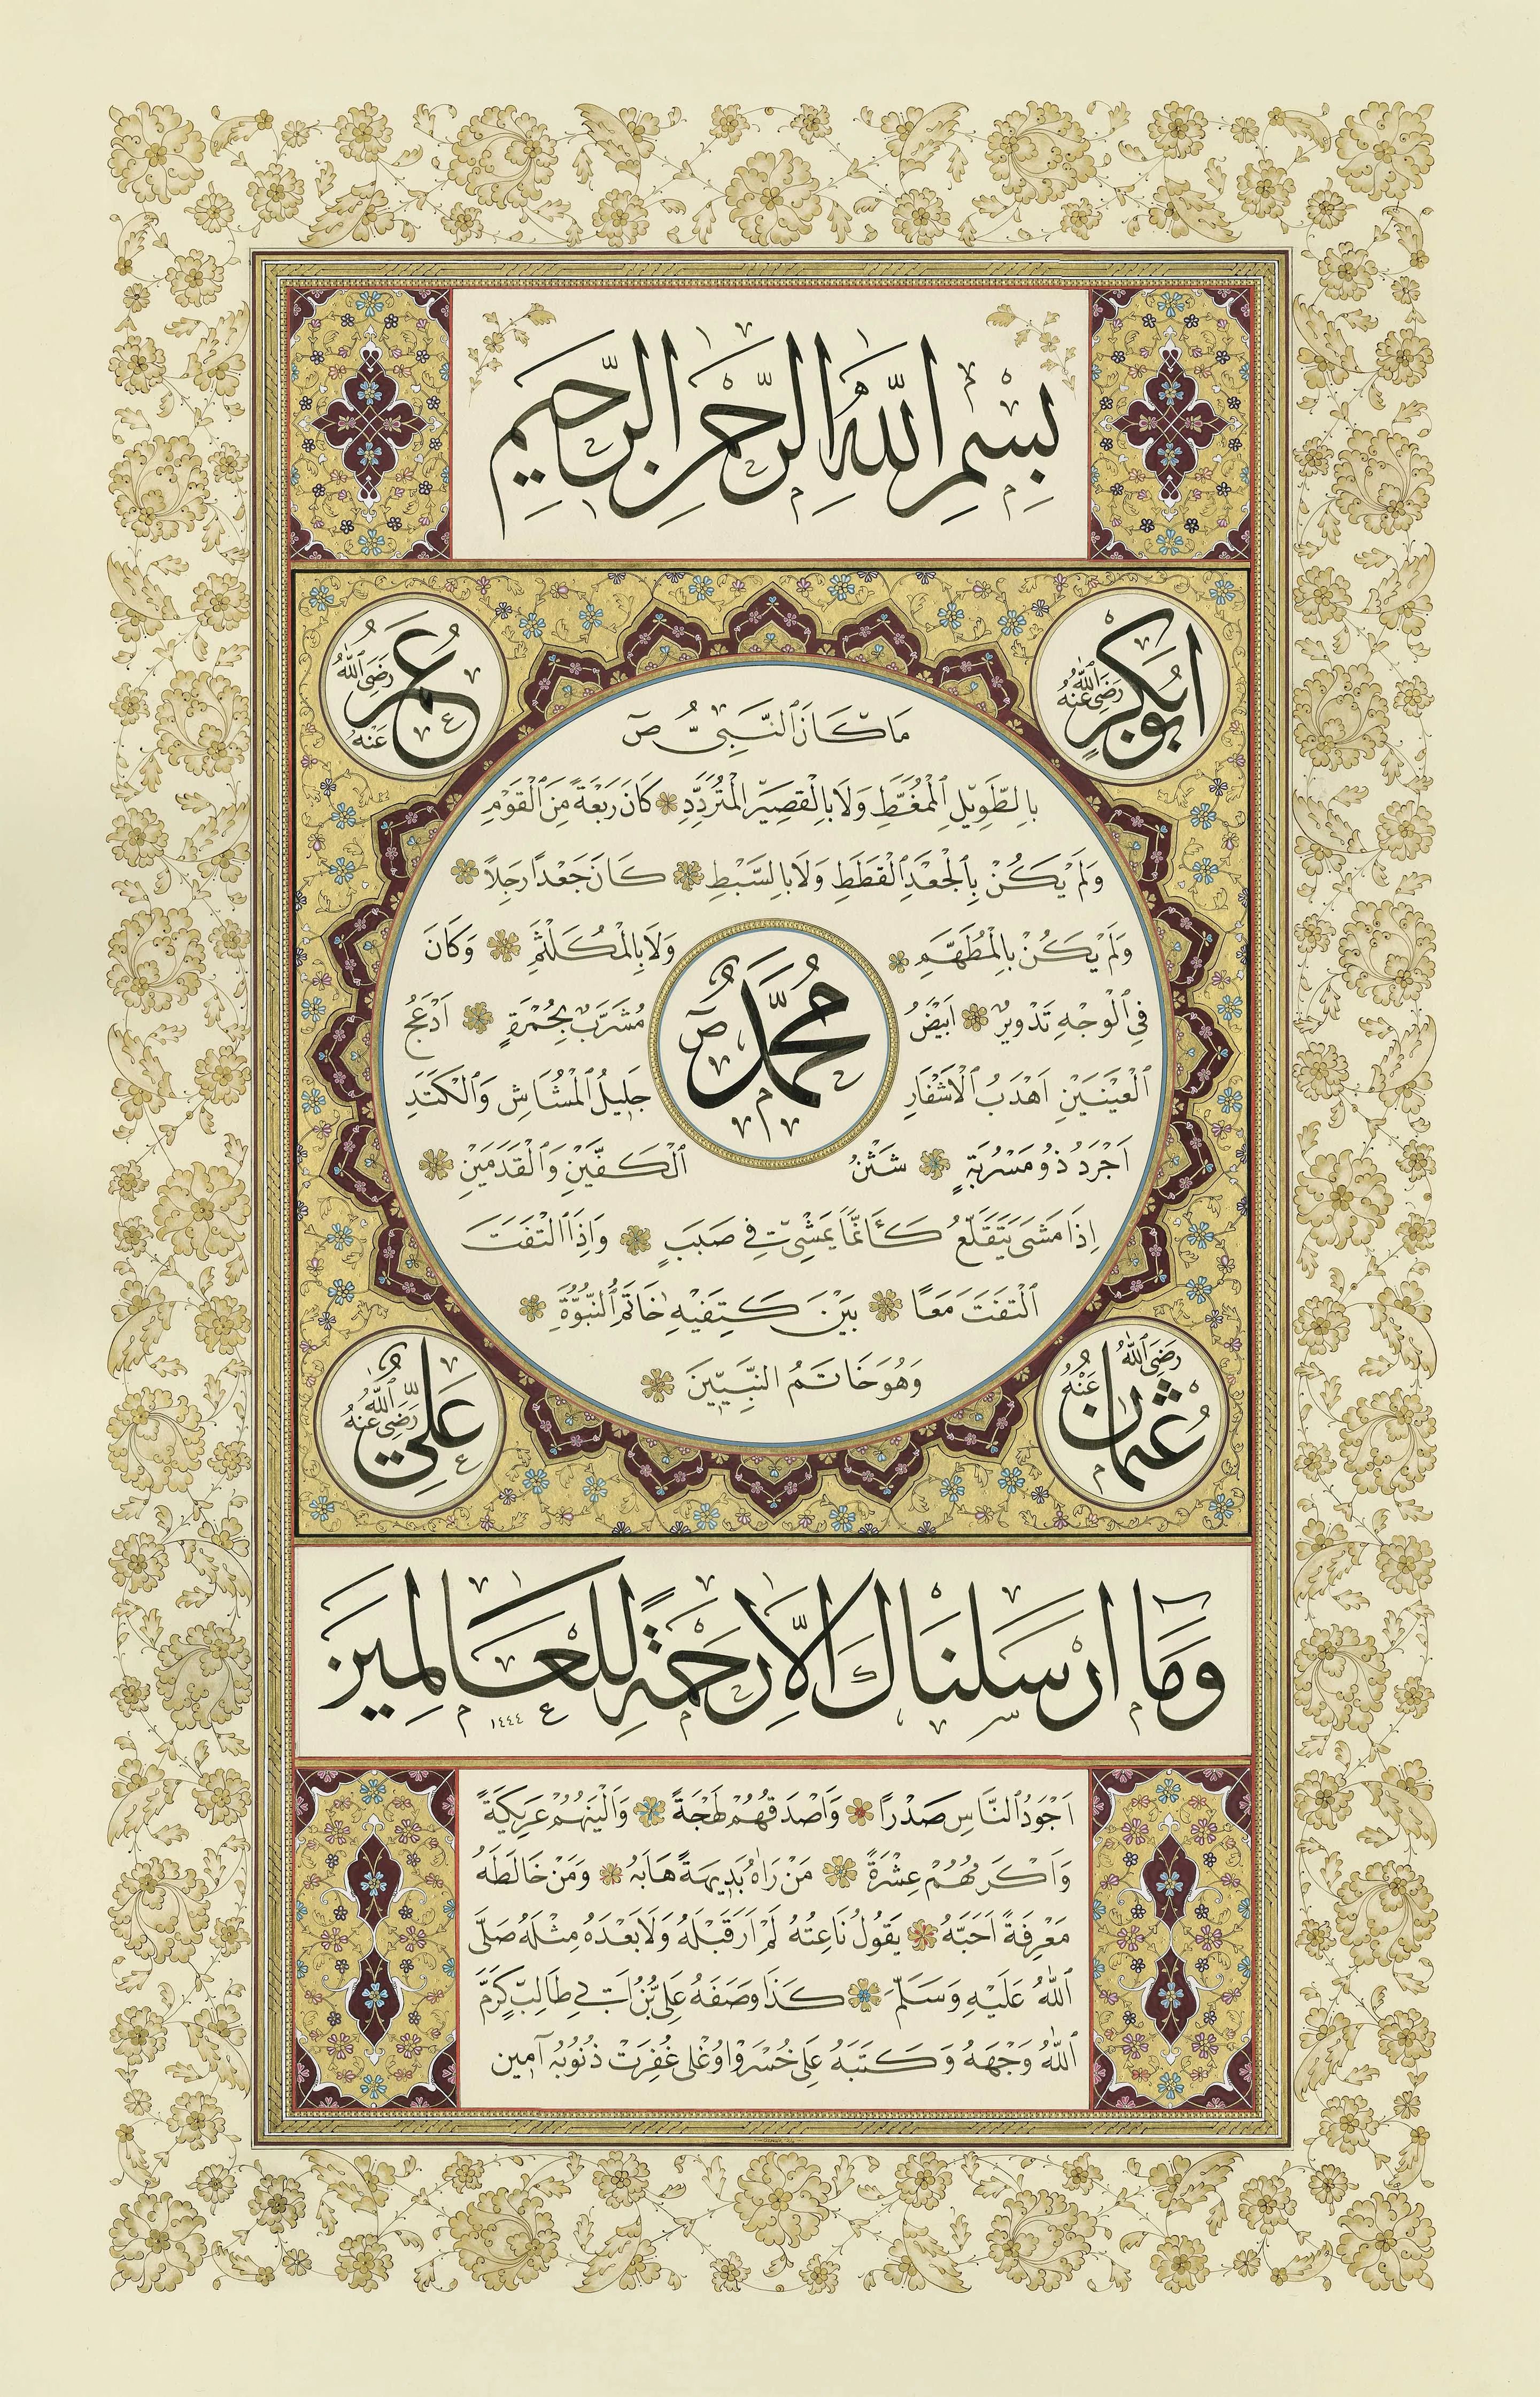 بِسْمِ اللّٰهِ الرَّحْمٰنِ الرَّحِيمِ
اَبُو بَكْرٍ رَضِيَ ٱللّٰهُ عَنْهُ
عُمَرُ رَضِيَ ٱللّٰهُ عَنْهُ
مَا كَانَ ٱلنَّبِيُّ ص
بِالطَّوِيلِ ٱلْمُمَّغَطِ وَلَا بِالْقَصِيرِ الْمُتَرَدِّدِ كَانَ رَبْعَةً مِنَ ٱلْقَوْمِ
وَلَمْ يَكُنْ بِٱلْجَعْدِ ٱلْقَطَطِ وَلَا بِالسَّبْطِ كَانَ جَعْدًا رَجِلًا
وَلَمْ يَكُنْ بِالْمُطَهَّمِ وَلَا بِالْمُكَلْثَمِ وَكَانَ
فِي ٱلْوَجْهِ تَدْوِيرٌ اَبْيَضُ مُشَرَبٌ بِحُمْرَةٍ اَدْعَجُ
ٱلْعَيْنَيْنِ اَهْدَبُ ٱلْاَشْفَارِ جَلِيلُ ٱلْمُشَاشِ وَٱلْكَتَدِ
اَجْرَدُ ذُو مَسْرُبَةٍ شَثْنُ ٱلْكَفَّيْنِ وَٱلْقَدَمَيْنِ
اِذَا مَشَى يَتَقَلَّعُ كَأَنَّمَا يَمْشِي فِي صَبَبٍ وَاِذَا ٱلْتَفَتَ
ٱلْتَفَتَ مَعًا بَيْنَ كَتِفَيْهِ خَاتَمُ ٱلنُّبُوَّةِ
وَهُوَ خَاتَمُ النَّبِيِّينَ
مُحَمَّدٌ ص
عُثْمَانُ رَضِيَ ٱللّٰهُ عَنْهُ
عَلِيٌّ رَضِيَ ٱللّٰهُ عَنْهُ
وَمَا اَرْسَلْنَاكَ اِلَّا رَحْمَةً لِلْعَالَمِينَ
١٤٤٤
اَجْوَدُ ٱلنَّاسِ صَدْرًا وَاَصْدَقُهُمْ لَهْجَةً وَاَلْيَنُهُمْ عَرِيكَةً
وَاَكْرَمُهُمْ عِشْرَةً مَنْ رَاٰهُ بَدِيهَةً هَابَهُ وَمَنْ خَالَطَهُ
مَعْرِفَةً اَحَبَّهُ يَقُولُ نَاعِتُهُ لَمْ اَرَ قَبْلَهُ وَلَا بَعْدَهُ مِثْلَهُ صَلَّى
ٱللّٰهُ عَلَيْهِ وَسَلَّمَ كَذَا وَصَفَهُ عَلِيُّ بْنُ اَبِي طَالِبٍ كَرَّمَ
ٱللّٰهُ وَجْهَهُ وَكَتَبَهُ عَلِي خُسْرَوْ اوُغْلِى غُفِرَتْ ذُنُوبُهُ آمِين